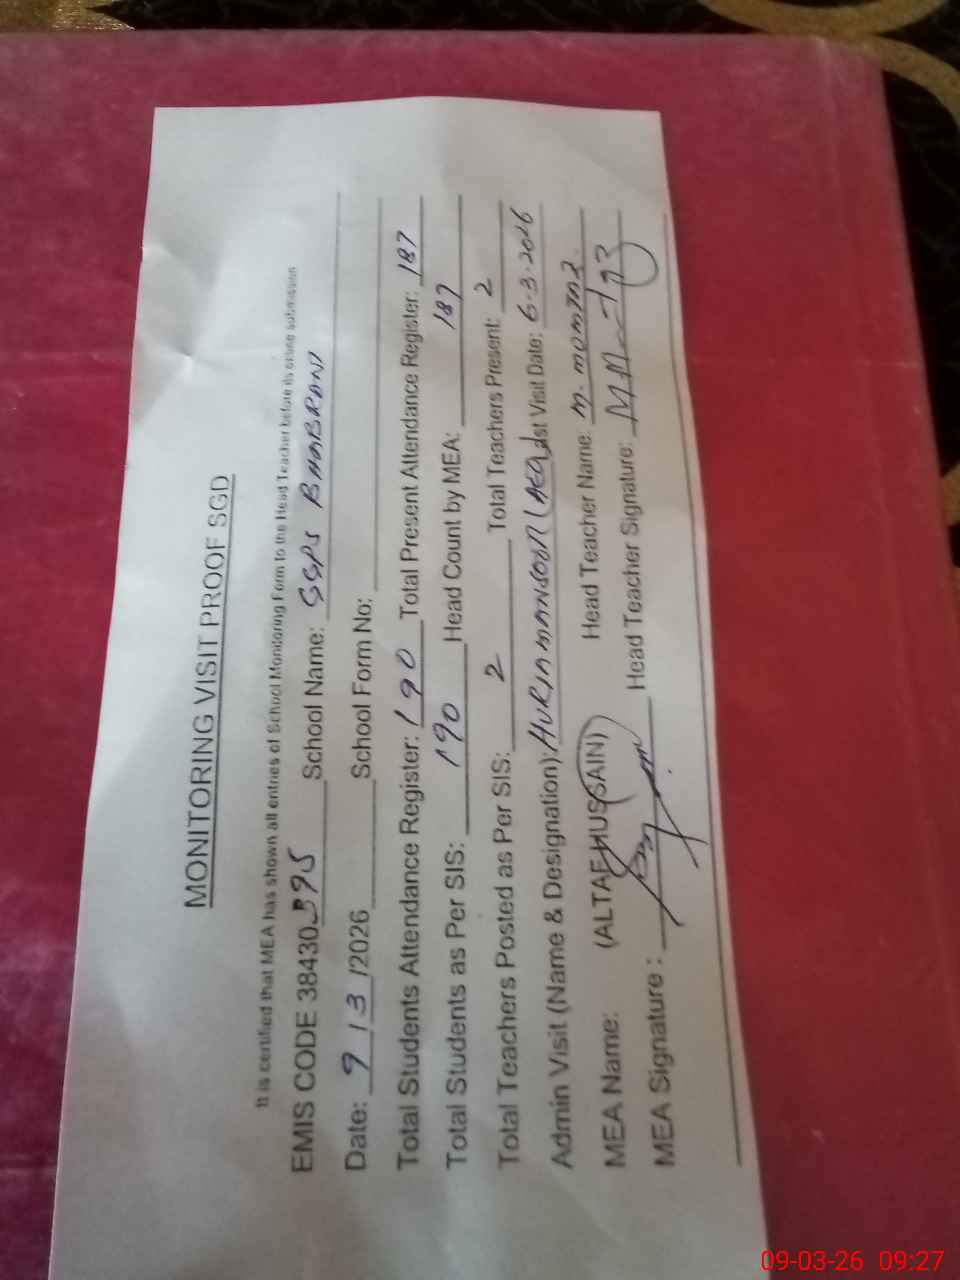 MONITORING VISIT PROOF SGD
It is certified that MEA has shown all entries of School Monitoring Form to the Head Teacher before its online submission
EMIS CODE 38430395 School Name: GGPS BHABRAN
Date: 9/3/2026 School Form No:
Total Students Attendance Register: 190 Total Present Attendance Register: 187
Total Students as Per SIS: 190 Head Count by MEA: 187
Total Teachers Posted as Per SIS: 2 Total Teachers Present: 2
Admin Visit (Name & Designation): HURIA MANSOOR (AEO) Last Visit Date: 6-3-2026
MEA Name: (ALTAF HUSSAIN) Head Teacher Name: M. MUMTAZ
MEA Signature : Head Teacher Signature:
09-03-26 09:27